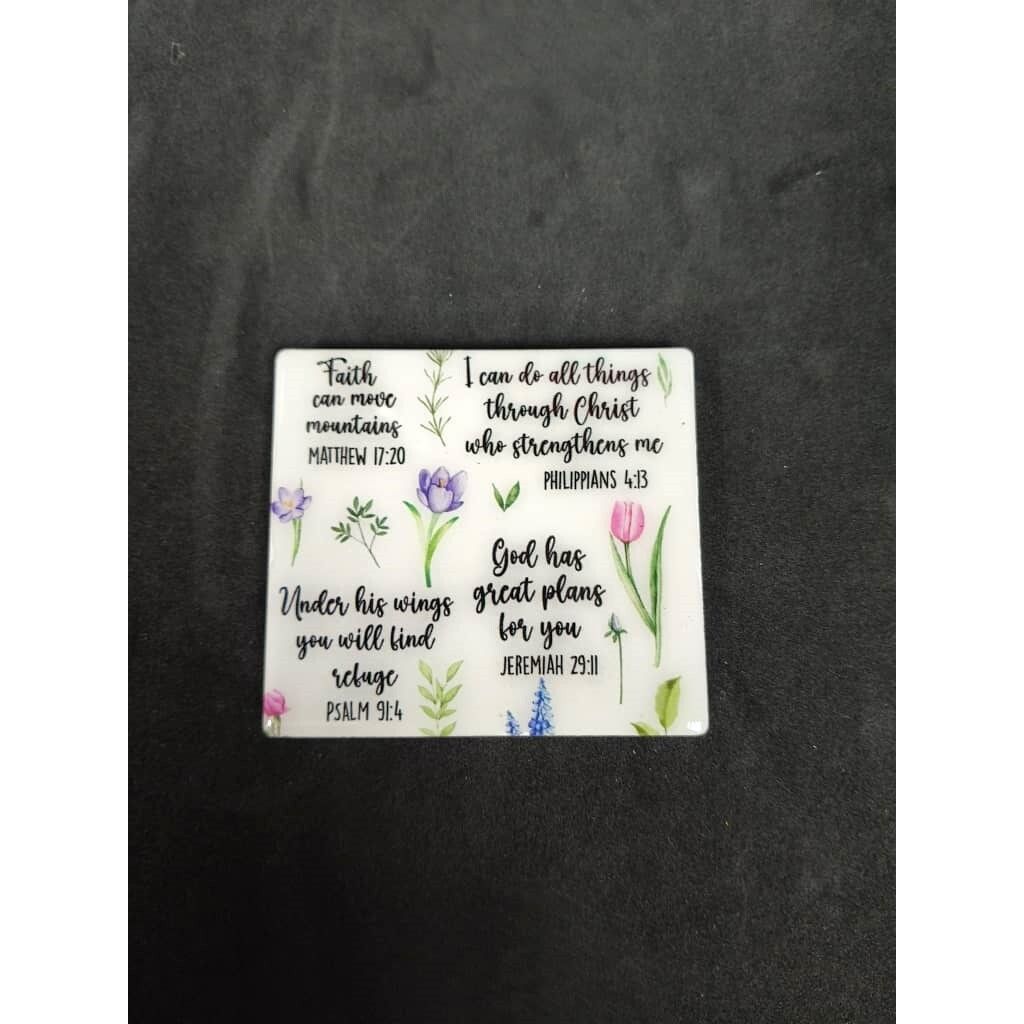 Faith
can move
mountains
MATTHEW 17:20
I can do all things
through Christ
who strengthens me
PHILIPPIANS 4:13
Under his wings
you will find
refuge
PSALM 91:4
God has
great plans
for you
JEREMIAH 29:11